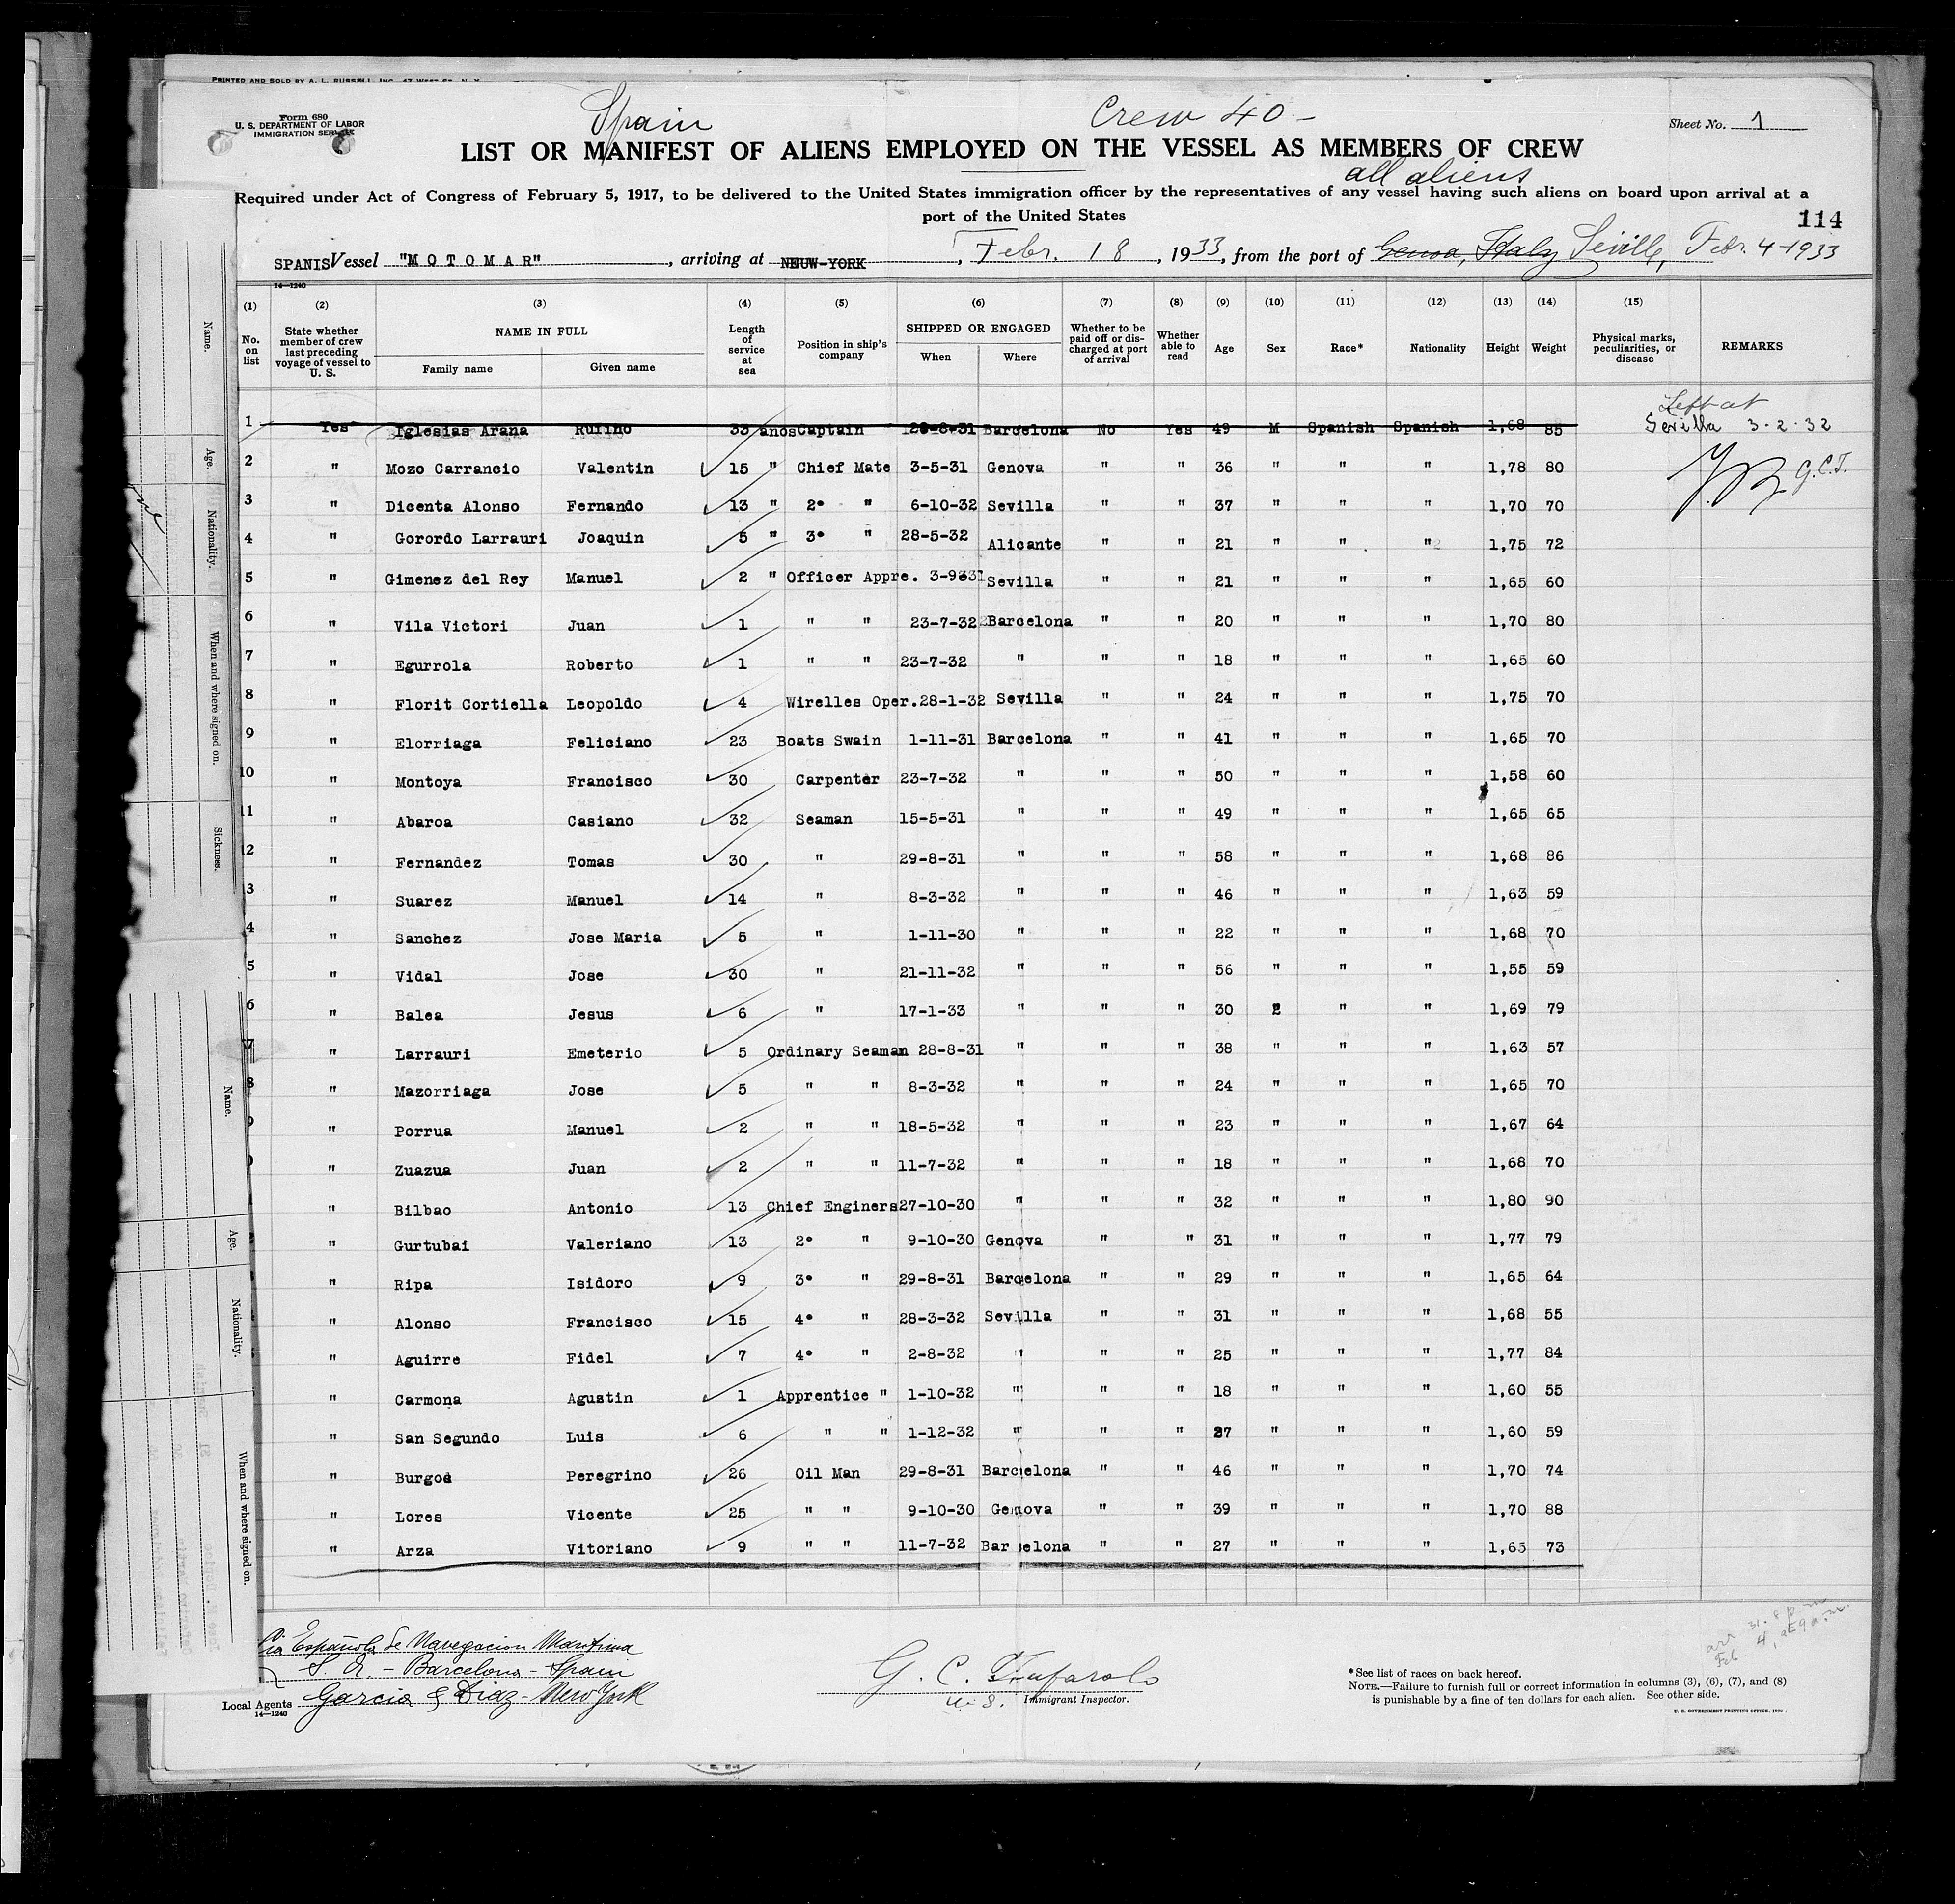 PRINTED AND SOLD BY A. L. RUSSELL, INC., 47 WEST ST. N. Y.
Form 680
U. S. DEPARTMENT OF LABOR
IMMIGRATION SERVICE
Spain
Crew 40 -
Sheet No. 1
LIST OR MANIFEST OF ALIENS EMPLOYED ON THE VESSEL AS MEMBERS OF CREW
all aliens
Required under Act of Congress of February 5, 1917, to be delivered to the United States immigration officer by the representatives of any vessel having such aliens on board upon arrival at a
port of the United States
114
SPANIS Vessel "MOTOMAR", arriving at NEUW-YORK, Febr. 18, 1933, from the port of Genoa, Italy Seville, Febr. 4-1933
14—1240
(1) (2) (3) (4) (5) (6) (7) (8) (9) (10) (11) (12) (13) (14) (15)
No. on list State whether member of crew last preceding voyage of vessel to U. S. NAME IN FULL Length of service at sea Position in ship's company SHIPPED OR ENGAGED Whether to be paid off or discharged at port of arrival Whether able to read Age Sex Race* Nationality Height Weight Physical marks, peculiarities, or disease REMARKS
Family name Given name When Where
Left at
1 Yes Iglesias Arana Rufino 33 anos Captain 28-8-31 Barcelona No Yes 49 M Spanish Spanish 1,68 85 Sevilla 3-2-32
2 " Mozo Carrancio Valentin 15 " Chief Mate 3-5-31 Genova " " 36 " " " 1,78 80 G.C.T.
3 " Dicenta Alonso Fernando 13 " 2º " 6-10-32 Sevilla " " 37 " " " 1,70 70
4 " Gorordo Larrauri Joaquin 5 " 3º " 28-5-32 Alicante " " 21 " " " 1,75 72
5 " Gimenez del Rey Manuel 2 " Officer Appre. 3-9-31 Sevilla " " 21 " " " 1,65 60
6 " Vila Victori Juan 1 " " 23-7-32 Barcelona " " 20 " " " 1,70 80
7 " Egurrola Roberto 1 " " 23-7-32 " " " 18 " " " 1,65 60
8 " Florit Cortiella Leopoldo 4 Wirelles Oper. 28-1-32 Sevilla " " 24 " " " 1,75 70
9 " Elorriaga Feliciano 23 Boats Swain 1-11-31 Barcelona " " 41 " " " 1,65 70
10 " Montoya Francisco 30 Carpenter 23-7-32 " " " 50 " " " 1,58 60
11 " Abaroa Casiano 32 Seaman 15-5-31 " " " 49 " " " 1,65 65
12 " Fernandez Tomas 30 " 29-8-31 " " " 58 " " " 1,68 86
3 " Suarez Manuel 14 " 8-3-32 " " " 46 " " " 1,63 59
4 " Sanchez Jose Maria 5 " 1-11-30 " " " 22 " " " 1,68 70
5 " Vidal Jose 30 " 21-11-32 " " " 56 " " " 1,55 59
6 " Balea Jesus 6 " 17-1-33 " " " 30 " " 1,69 79
7 " Larrauri Emeterio 5 Ordinary Seaman 28-8-31 " " " 38 " " " 1,63 57
8 " Mazorriaga Jose 5 " " 8-3-32 " " " 24 " " " 1,65 70
" Porrua Manuel 2 " " 18-5-32 " " " 23 " " " 1,67 64
" Zuazua Juan 2 " " 11-7-32 " " " 18 " " " 1,68 70
" Bilbao Antonio 13 Chief Enginers 27-10-30 " " " 32 " " " 1,80 90
" Gurtubai Valeriano 13 2º " 9-10-30 Genova " " 31 " " " 1,77 79
" Ripa Isidoro 9 3º " 29-8-31 Barcelona " " 29 " " " 1,65 64
" Alonso Francisco 15 4º " 28-3-32 Sevilla " " 31 " " " 1,68 55
" Aguirre Fidel 7 4º " 2-8-32 " " " 25 " " " 1,77 84
" Carmona Agustin 1 Apprentice " 1-10-32 " " " 18 " " " 1,60 55
" San Segundo Luis 6 " " 1-12-32 " " " 27 " " " 1,60 59
" Burgos Peregrino 26 Oil Man 29-8-31 Barcelona " " 46 " " " 1,70 74
" Lores Vicente 25 " " 9-10-30 Genova " " 39 " " " 1,70 88
" Arza Vitoriano 9 " " 11-7-32 Barcelona " " 27 " " " 1,65 73
Cia Española de Navegacion Maritima
S. A. - Barcelona - Spain
Local Agents Garcia & Diaz - New York
14—1240
G. C. Tufarolo
U.S. Immigrant Inspector.
*See list of races on back hereof.
NOTE.—Failure to furnish full or correct information in columns (3), (6), (7), and (8)
is punishable by a fine of ten dollars for each alien. See other side.
U. S. GOVERNMENT PRINTING OFFICE
Name.
Age.
Nationality.
When and where signed on.
Sickness.
Name.
Age.
Nationality.
When and where signed on.